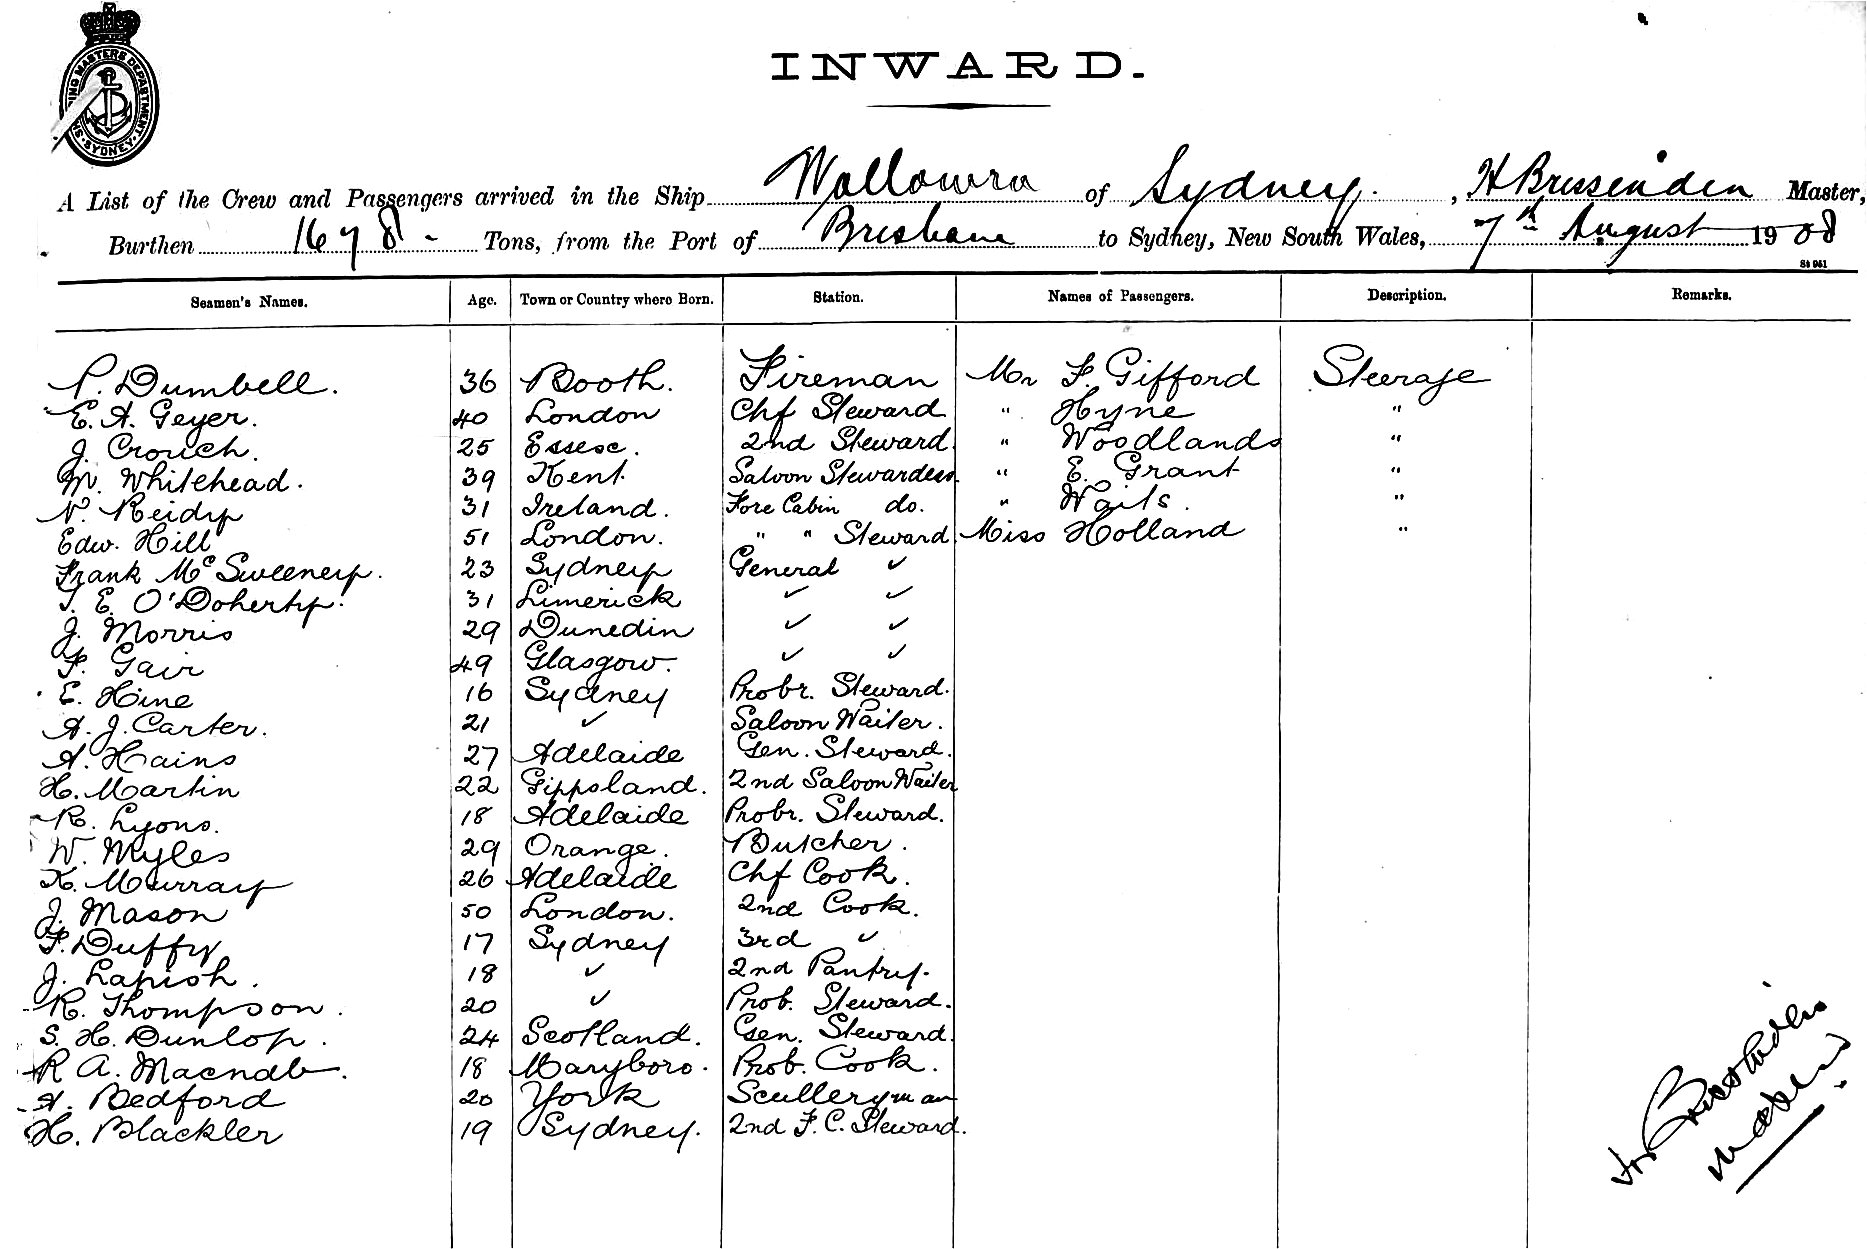 SHIPPING MASTERS DEPARTMENT SYDNEY
INWARD.
A List of the Crew and Passengers arrived in the Ship Wollowra of Sydney. , H Bressenden Master,
Burthen 1678 - Tons, from the Port of Brisbane to Sydney, New South Wales, 7th August 1908
St 961
Seamen's Names. Age. Town or Country where Born. Station. Names of Passengers. Description. Remarks.
P. Dumbell. 36 Booth. Fireman Mr F. Gifford Steerage
E. A. Geyer. 40 London Chf Steward " Hyne "
J. Crouch. 25 Essex. 2nd Steward. " Woodlands "
M. Whitehead. 39 Kent. Saloon Stewardess. " E. Grant "
N. Reidy 31 Ireland. Fore Cabin do. " Waits. "
Edw. Hill 51 London. " " Steward Miss Holland "
Frank McSweeney. 23 Sydney General ✓
T. E. O'Doherty. 31 Limerick ✓ ✓
J. Morris 29 Dunedin ✓ ✓
F. Gair 49 Glasgow. ✓ ✓
E. Hine 16 Sydney Probr. Steward.
A. J. Carter. 21 ✓ Saloon Waiter.
A. Hains 27 Adelaide Gen. Steward.
H. Martin 22 Gippsland. 2nd Saloon Waiter
R. Lyons. 18 Adelaide Probr. Steward.
W. Myles 29 Orange. Butcher.
K. Murray 26 Adelaide Chf Cook.
J. Mason 50 London. 2nd Cook.
F. Duffy 17 Sydney 3rd ✓
J. Lapish. 18 ✓ 2nd Pantry.
R. Thompson. 20 ✓ Prob. Steward.
S. H. Dunlop. 24 Scotland. Gen. Steward.
R A. Macnab. 18 Maryboro. Prob. Cook.
A. Bedford 20 York Scullery man
H. Blackler 19 Sydney. 2nd F. C. Steward.
H Bressenden
Master